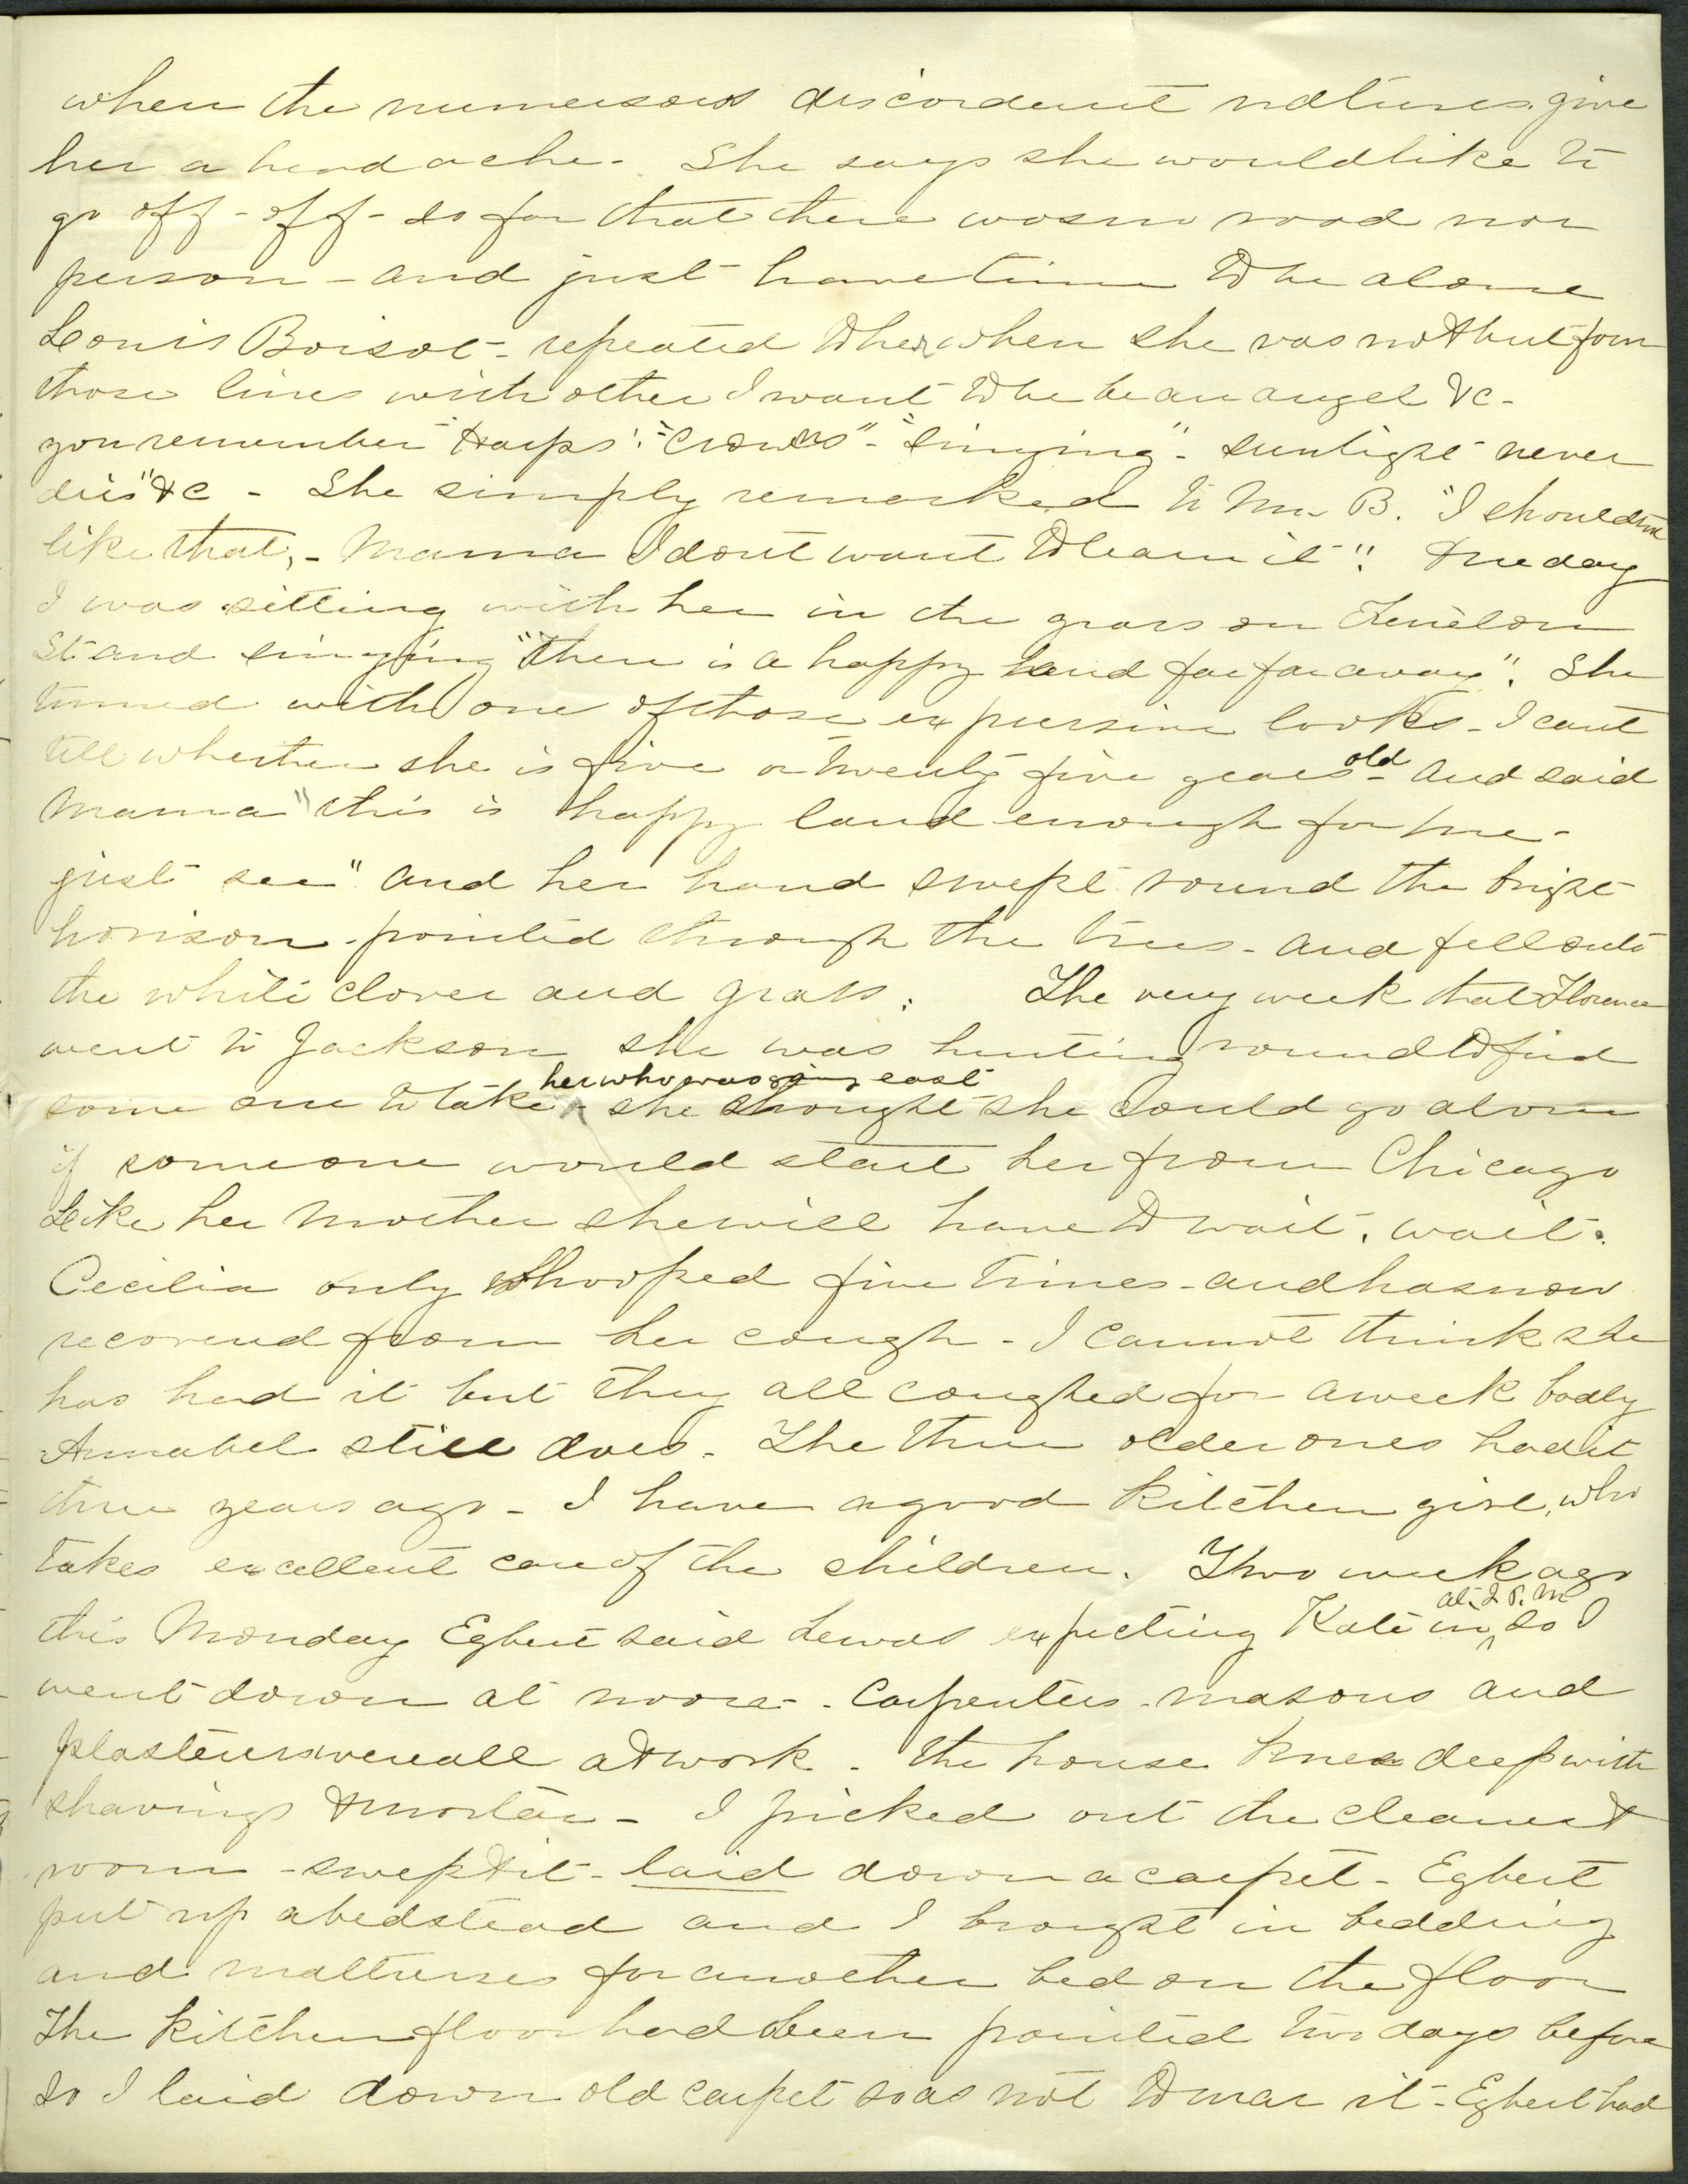 when the numerous discordent natures give
her a head ache. She says she would like to
go off - off - so far that there was no road nor
person - and just have time to be alone
Louis Boisot - repeated to her when she was not but four
those lines with other I want to be be an angel &c -
you remember "Harps". "Crowns" - "singing" - sunlight never
dies" &c - She simply remarked to Mr B. "I should not
like that, - Mama I dont want to learn it". One day
I was sitting with her in the grass on Fenelon
St and singing "There is a happy land far far away". She
turned with one of those expressive looks - I cant
tell whether she is five or twenty five years old - And said
Mama "this is happy land enough for me -
just see" and her hand swept round the bright
horison - pointed through the trees - and fell onto
the white clover and grass. The very week that Florence
went to Jackson she was hunting round to find
some one to take her who was going east - she thought she could go alone
if someone would start her from Chicago
Like her Mother she will have to wait, wait.
Cecilia only whooped five times - and has now
recovered from her cough - I cannot think she
has had it but they all coughed for a week badly
Annabel still does. The three older ones had it
three years ago - I have a good kitchen girl, who
takes excellent care of the children. Two week ago
this Monday Egbert said he was expecting Kate in at 2 P.M so I
went down at noon - Carpenters - masons and
plasterers were all at work. The house knee deep with
shavings & mortar - I picked out the cleanest
room - swept it - laid down a carpet - Egbert
put up a bedstead and I brought in bedding
and mattresses for another bed on the floor
The kitchen floor had been painted two days before
so I laid down old carpet so as not to mar it - Egbert had